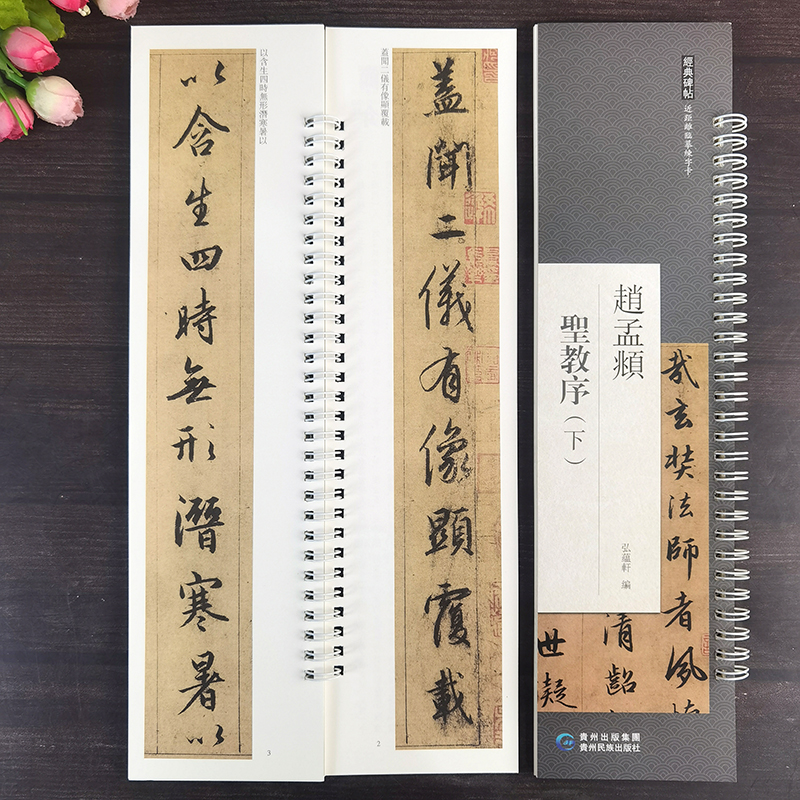 蓋聞二儀有像顯覆載
蓋聞二儀有像顯覆載
2
以含生四時無形潛寒暑以
以含生四時無形潛寒暑以
3
經典碑帖
近距離臨摹練字卡
趙孟頫
聖教序（下）
弘蘊軒 編
哉玄奘法師者夙
清齠
世疑
貴州出版集團
貴州民族出版社